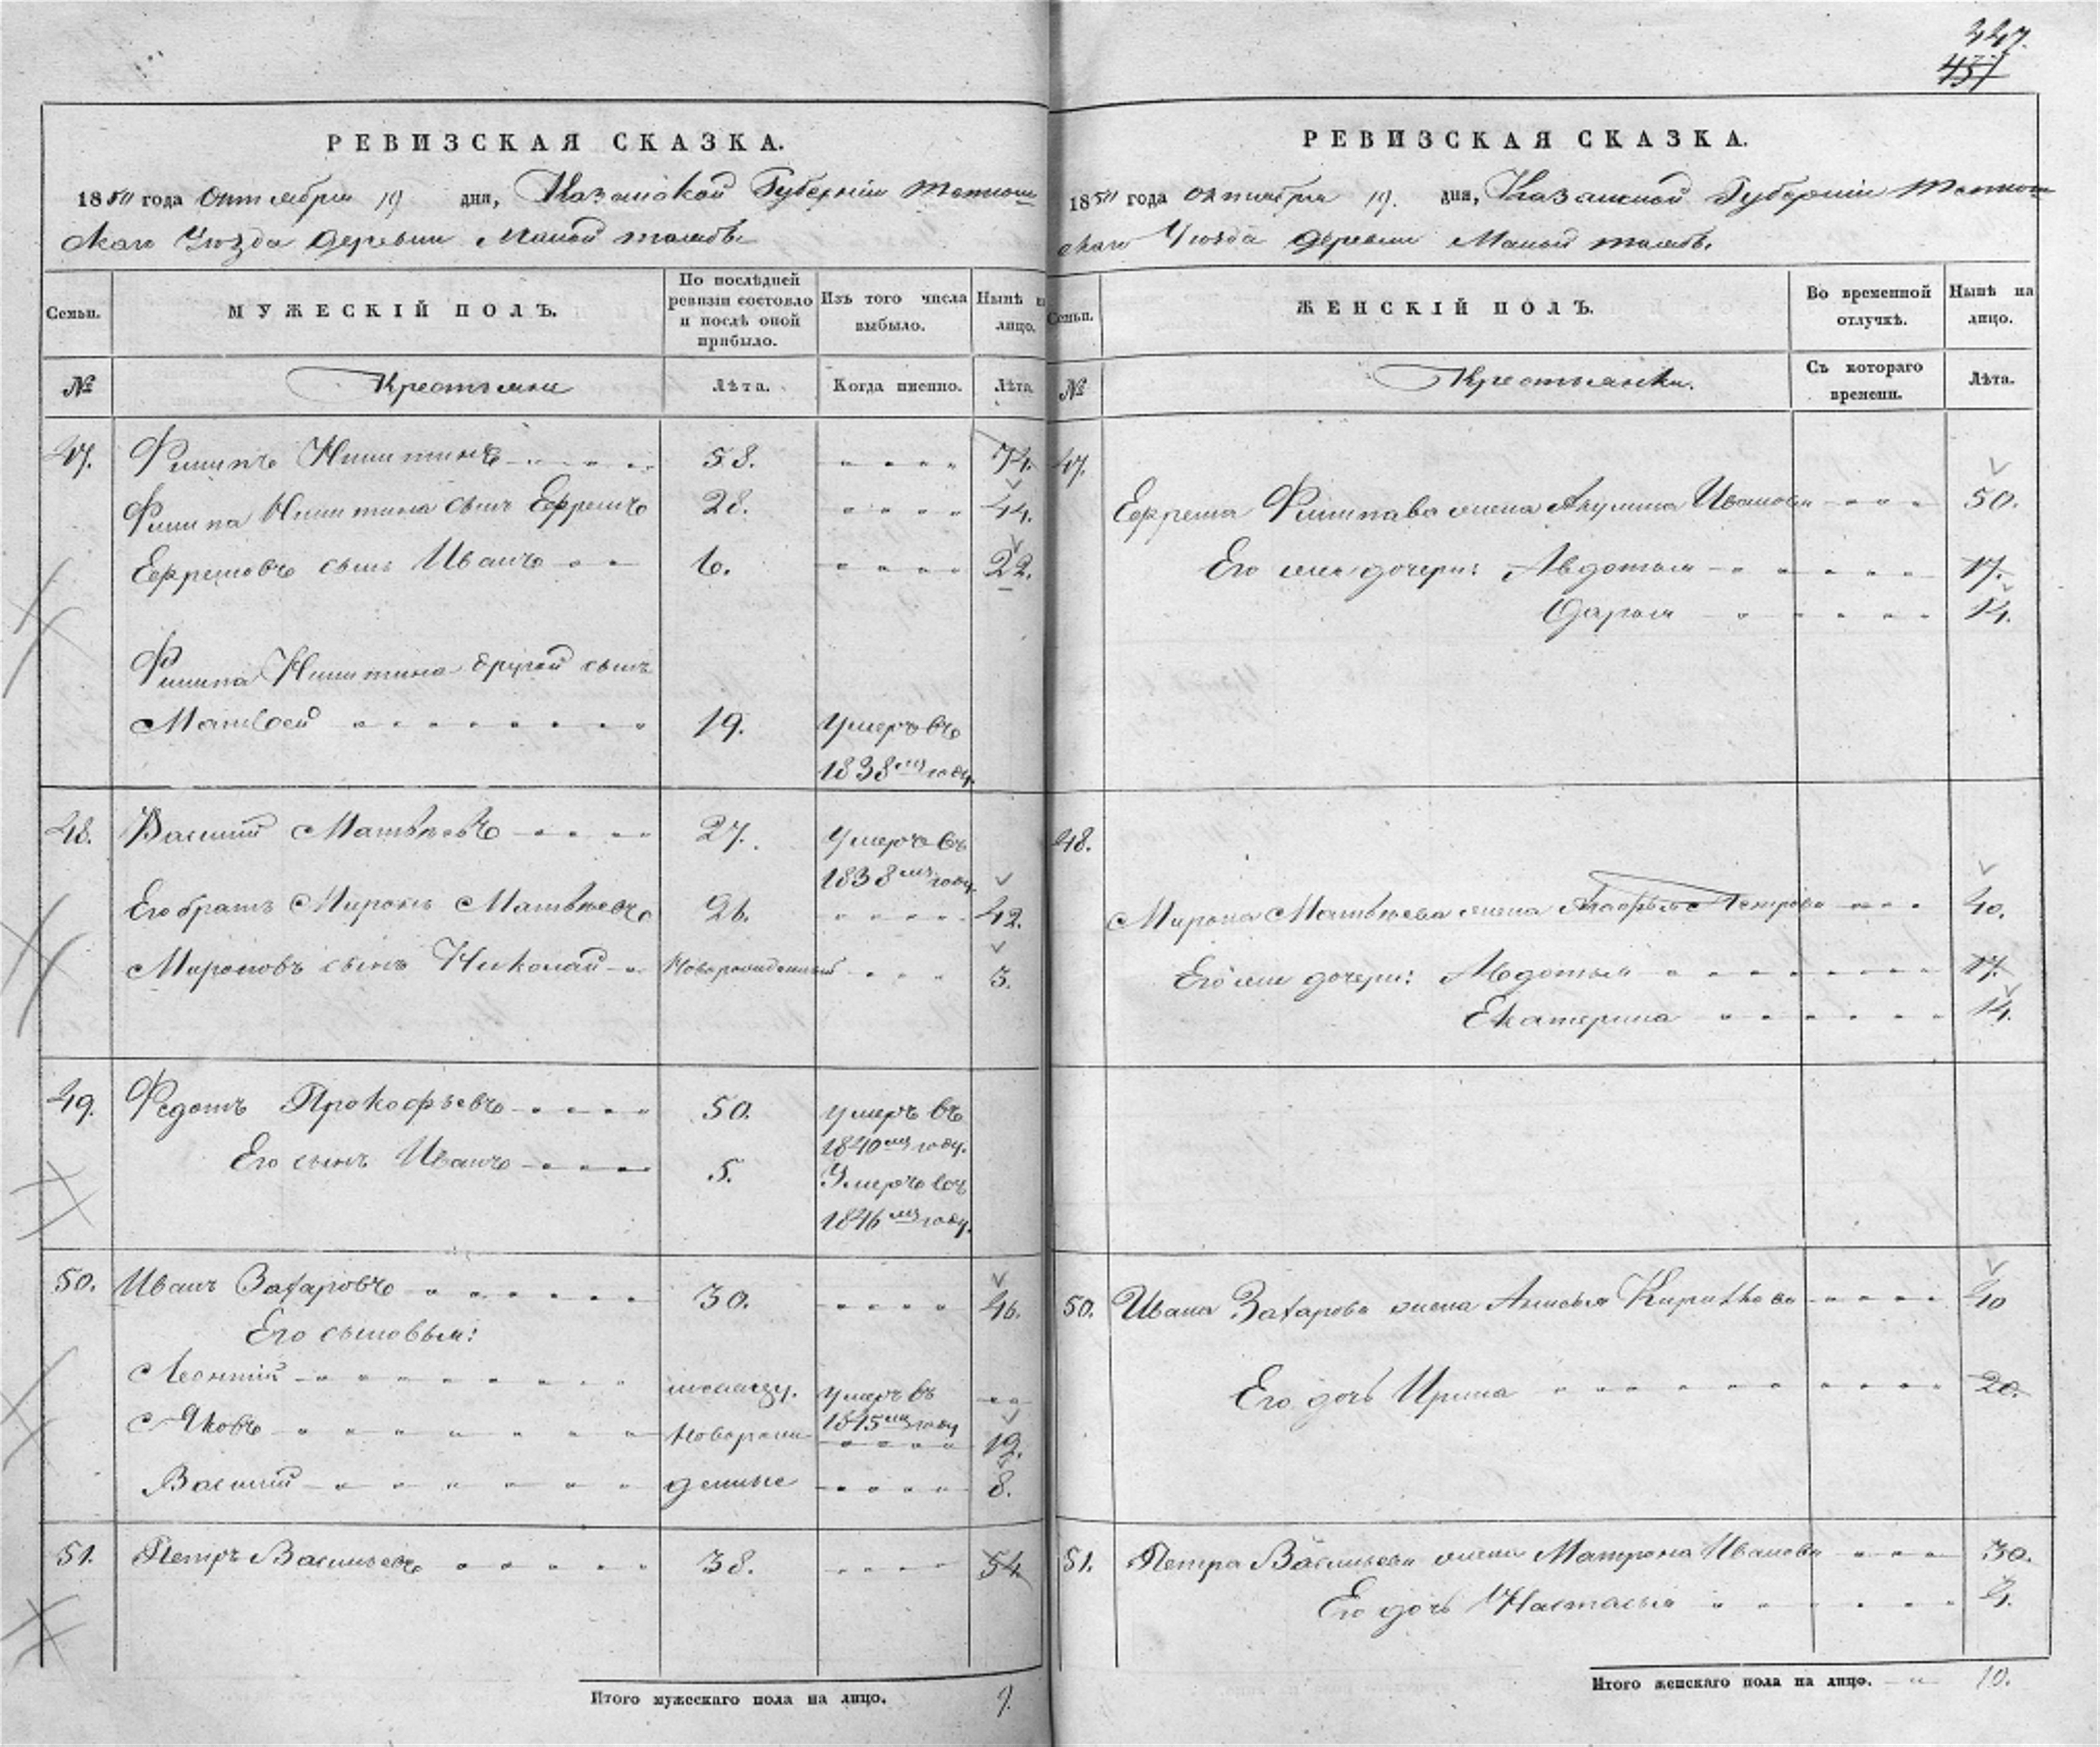 447.
437
РЕВИЗСКАЯ СКАЗКА.
1850 года Октября 19 дня, Казанской Губернiи
скаго Уѣзда деревни Малой
Семьи. МУЖЕСКIЙ ПОЛЪ. По послѣдней ревизiи состояло и послѣ оной прибыло. Изъ того числа выбыло. Нынѣ на лицо.
№ Крестьяне Лѣта. Когда именно. Лѣта.
47. Филипъ Никитинъ 58. 74.
Филипа Никитина сынъ Ефремъ 28. 44.
Ефремовъ сынъ Иванъ 6. 22.
Филипа Никитина другой сынъ
Матвѣй 19. Умеръ въ
1838мъ году.
48. Василiй Матвѣевъ 27. Умеръ въ
1838мъ году.
Его братъ Миронъ Матвѣевъ 26. 42.
Мироновъ сынъ Николай Новорожденный 3.
49. Федотъ Прокофьевъ 50. умеръ въ
1840мъ году.
Его сынъ Иванъ 5. Умеръ въ
1846мъ году.
50. Иванъ Захаровъ 30. 46.
Его сыновья:
Леонтiй умеръ въ
1845мъ году
Яковъ новорож- 12.
Василiй денные 8.
51. Петръ Васильевъ 38. 54
Итого мужескаго пола на лицо. 9.
РЕВИЗСКАЯ СКАЗКА.
1850 года Октября 19. дня, Казанской Губернiи
скаго Уѣзда деревни Малой
Семьи. ЖЕНСКIЙ ПОЛЪ. Во временной отлучкѣ. Нынѣ на лицо.
№ Крестьянки. Съ котораго времени. Лѣта.
47.
Ефрема Филипава жена Акулина Иванова 50.
Его жъ дочери: Авдотья 17.
Дарья 14.
48.
Мирона Матвѣева жена Петрова 40.
Его жъ дочери: Авдотья 17.
Екатерина 14.
50. Ивана Захарова жена Кирилова 40
Его дочь Ирина 20.
51. Петра Васильева жена Матрона Иванова 30.
Его дочь Настасья 4.
Итого женскаго пола на лицо. 10.